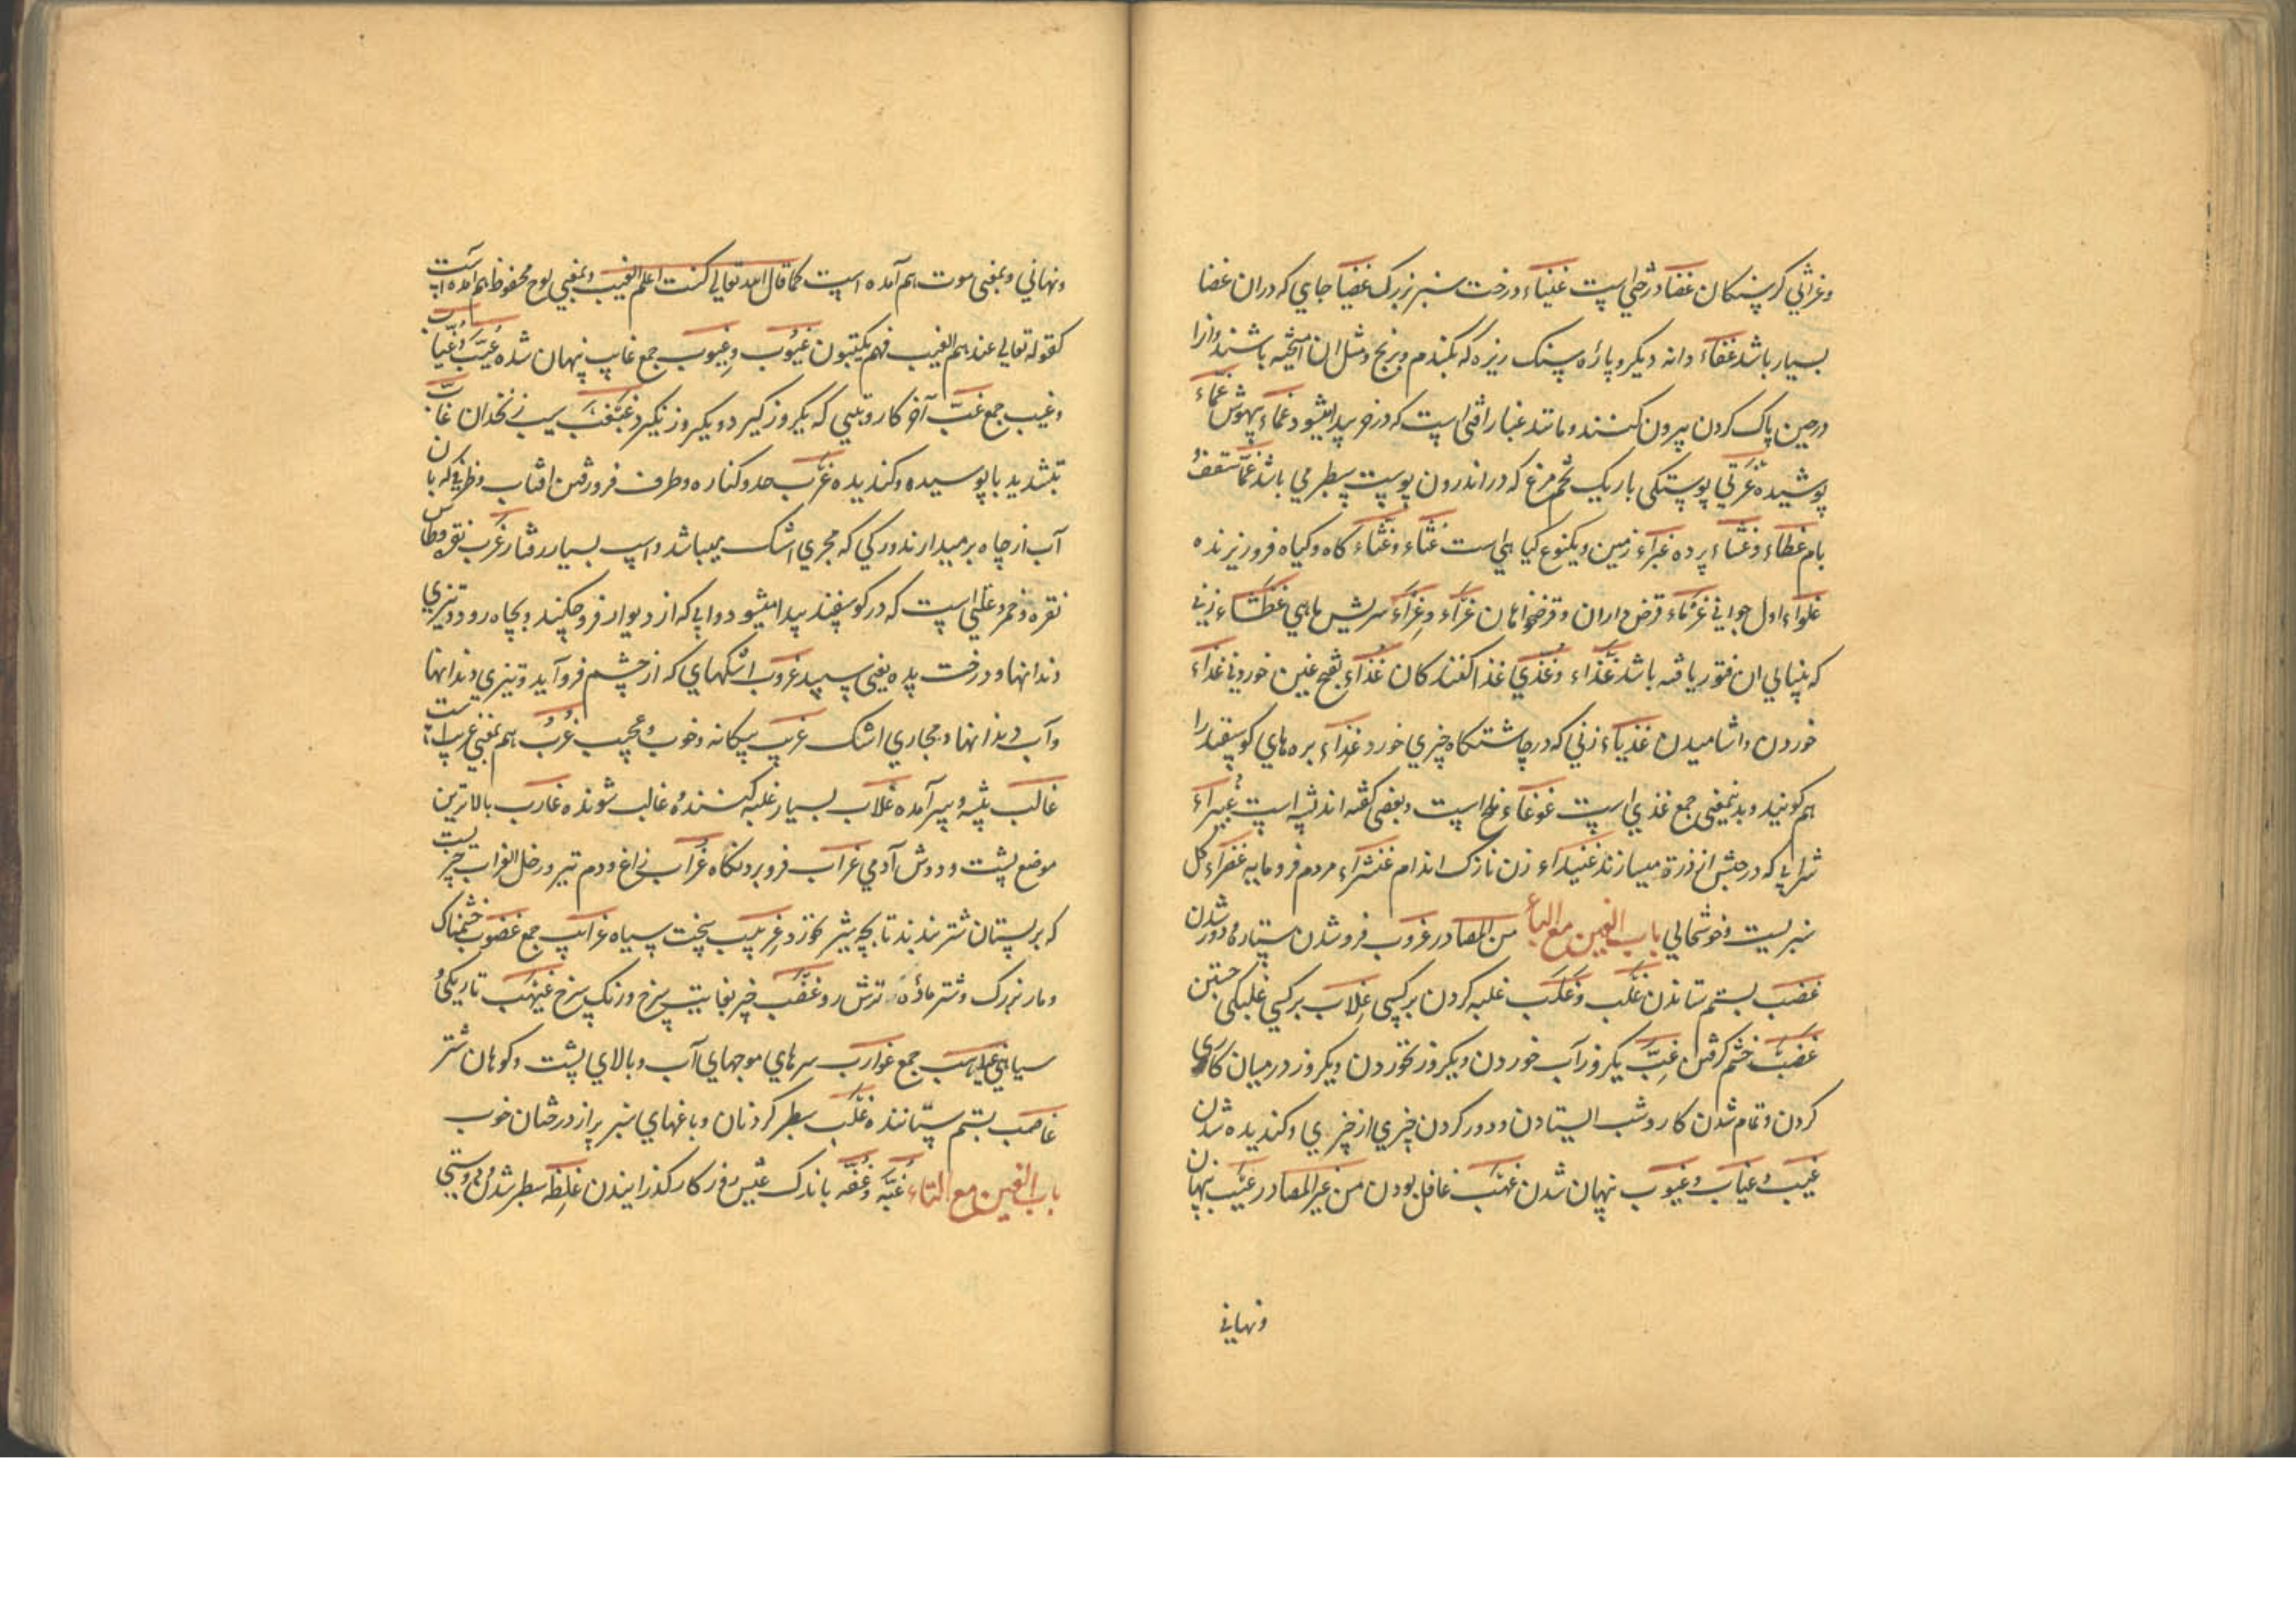 وغراثي کرسنکان غضا درختي است غیناء درخت سبز بزرک غضیا جاي که دران غضا
بسیار باشد غفاء دانه دیکر و پاره سنک ریزه که بکندم و برنج و مثل ان امیخته باشند و انرا
درحین پاک کردن بیرون کنند و مانند غبار افتي است که در خرما پیدا میشود غماء بیهوش غماء
پوشیده غرقي پوستکي باریک تخم مرغ که در اندرون پوست سطبر مي باشد غما سقف
بام غطاء و غشاء پرده غبراء زمین و یکنوع کیاهي است غثاء و غثّاء کاه و کیاه فرو ریزنده
غلواء اول جواني غرماء قرض داران و قرضخواهان غراء و غراء سریش ماهي غطشاء زني
که بینایي ان فتور یافته باشد غذاء و غذي غذا کنندکان غداء بفتح غین خوردني غذاء
خوردن و اشامیدن غدیاء زني که در چاشتکاه چیزي خورد غذاء بره هاي کوسفند را
هم کویند و بدینمعني جمع غذي است غوغاء ملخ است و بعضي کفته اند پشه است غبیراء
شرابي که در حبش از ذرة میسازند غیداء زن نازک اندام غثراء مردم فرومایه غضراء کل
سبز است و خوشحالي باب الغین مع الباء من المصادر غروب فرو شدن ستاره و دور شدن
غصب بستم ستاندن غلب و غلب غلبه کردن بر کسي غلاب بر کسي غلبکي جستن
غضب خشم کرفتن غبّ یکروز آب خوردن و یکروز نخوردن و یکروز در میان کاري
کردن و تمام شدن کار و شب ایستادن و دور کردن چیزي از چیزي و کندیده شدن
غیب و غیاب و غیوب نهان شدن غهب غافل بودن من غیر المصادر غیب پنهان
ونهاني
ونهاني وبمعني موت هم آمده است کما قال الله تعالي کنت اعلم الغیب وبمعني لوح محفوظ هم آمده است
کقوله تعالي عندهم الغیب فهم یکتبون غیوب و غیوب جمع غایب نهان شده غیّب و غیاب
و غیب جمع غبّ آخر کار و تبي که یکروز کیرد و یکروز نکیرد غبغب سیب زنخدان غاب
بتشدید با بوسیده و کندیده غرب حد و کناره و طرف فرو رفتن افتاب و ظرفي که بان
آب از چاه برمیدارند و رکي که مجري اشک میباشد و اسپ بسیار رفتار غرب نقره و طاس
نقره و خمر و علتي است که در کوسفند پیدا میشود و آبي که از دیوار فرو چکد و بچاه رود و تیزي
دندانها و درخت پده یعني سپید غروب اشکهاي که از چشم فرو آید و تیزي دندانها
و آب دندانها و مجاري اشک غریب بیکانه و خوب و عجیب غرب هم بمعني غریب است
غالب پیشه و بسر آمده غلاب بسیار غلبه کننده غالب شونده غارب بالاترین
موضع پشت و دوش آدمي غراب فرو بردنکاه غراب زاغ و دم تیر و رجل الغراب چیزیست
که بر پستان شتر بندند تا بچه شیر نخورد غربیب سخت سیاه غرابیب جمع غضوب خشمناک
و مار بزرک و شتر ماده ترش رو غضب چیز بغایت سرخ و رنک سرخ غیهب تاریکي و
سیاهي غیاهب جمع غوارب سرهاي موجهاي آب و بالاي پشت و کوهان شتر
غاصب بستم ستاننده غلب سطبر کردنان و باغهاي سبز پر از درختان خوب
باب الغین مع التاء غبّه و غفّه باندک عیش روز کار کذرانیدن غلظة سطبر شدن و درشتي